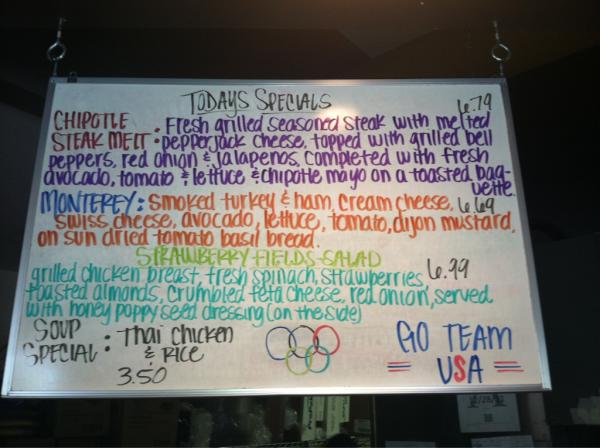 TODAYS SPECIALS
6.79
CHIPOTLE STEAK MELT: Fresh grilled seasoned steak with melted
pepperjack cheese, topped with grilled bell
peppers, red onion & jalapenos, completed with fresh
avocado, tomato & lettuce & chipotle mayo on a toasted bag-
uette.
MONTEREY: Smoked turkey & ham, cream cheese, 6.69
swiss cheese, avocado, lettuce, tomato, dijon mustard,
on sun dried tomato basil bread.
STRAWBERRY FIELDS SALAD
grilled chicken breast, fresh spinach, strawberries 6.99
toasted almonds, crumbled feta cheese, red onion, served
with honey poppy seed dressing (on the side)
SOUP SPECIAL: Thai Chicken
& RICE
3.50
GO TEAM
USA